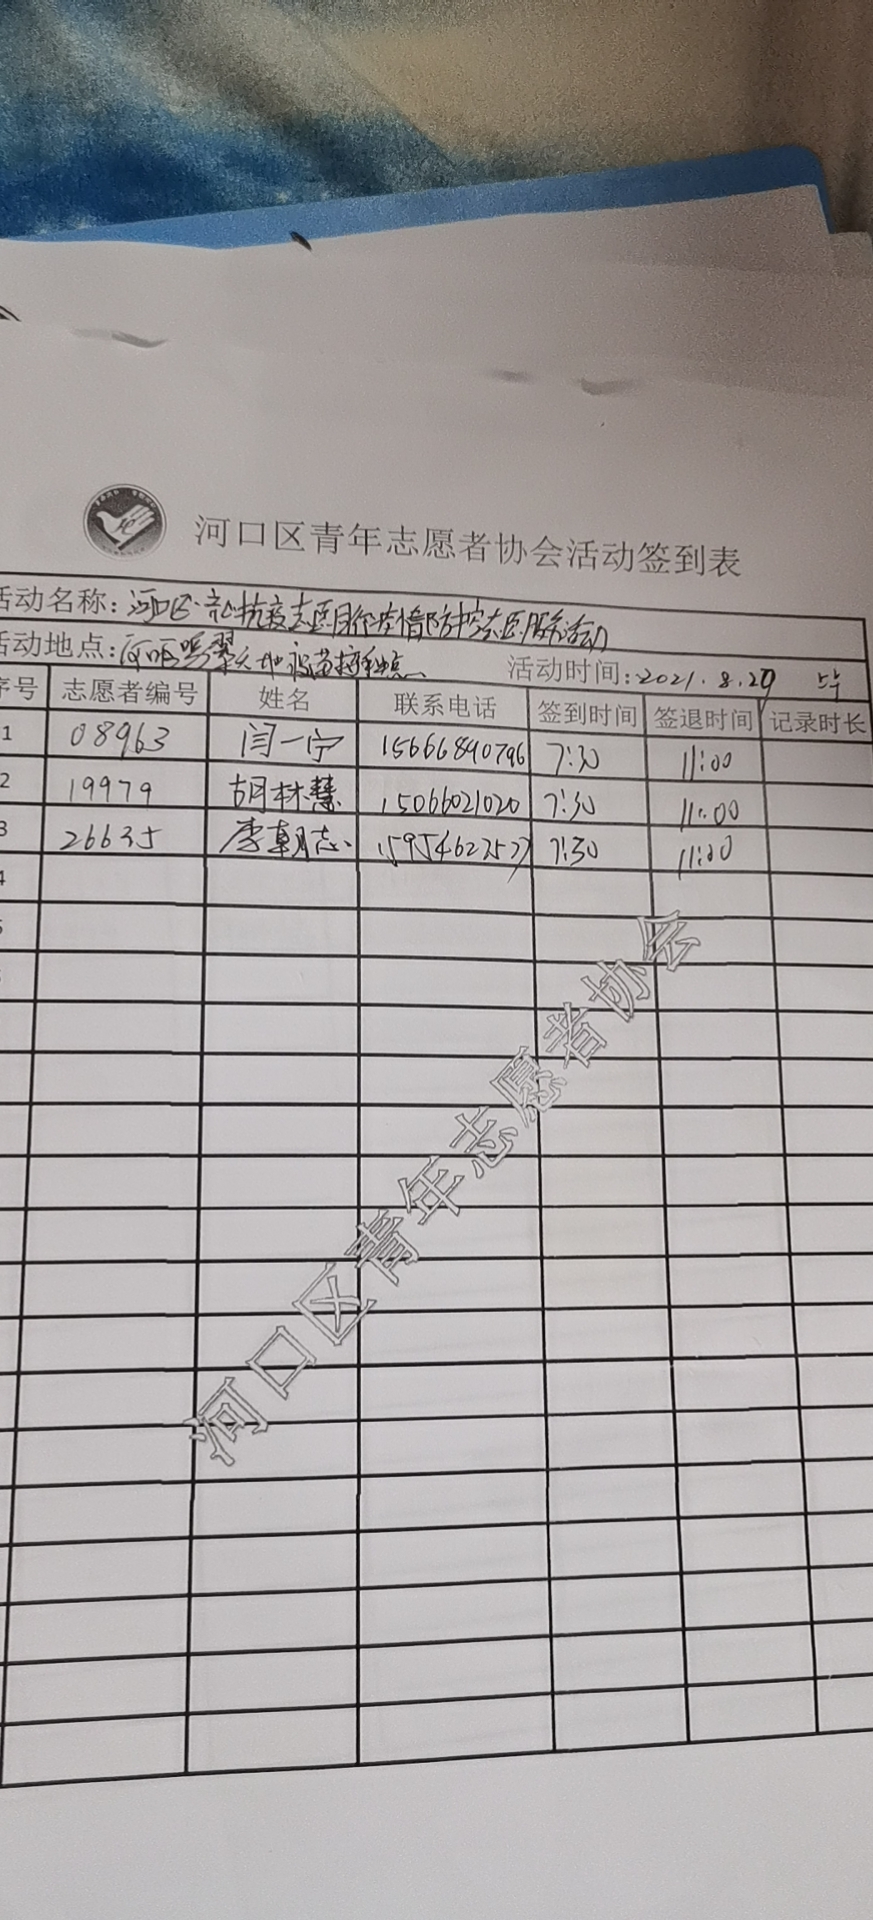 河口区青年志愿者协会活动签到表
活动名称：河口区"齐心抗疫 志愿同行"疫情防控志愿服务活动
活动地点：河口区 疫苗接种点 活动时间：2021.8.29
序号 志愿者编号 姓名 联系电话 签到时间 签退时间 记录时长
1 08963 闫一宁 15666890796 7:30 11:00
2 19979 胡林慧 15066021020 7:30 11:00
3 26635 李朝志 15954623577 7:30 11:00
4
5
河口区青年志愿者协会